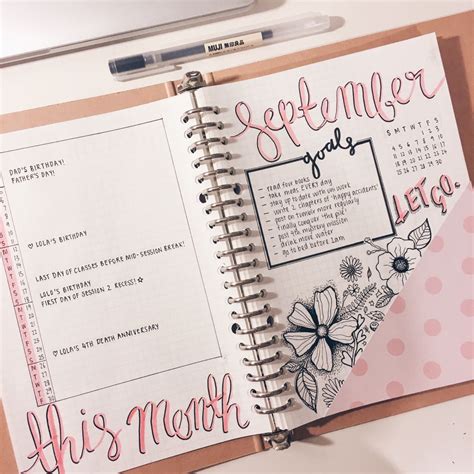 MUJI 無印良品
DAD'S BIRTHDAY!
FATHER'S DAY!
♡ LOLA'S BIRTHDAY
LAST DAY OF CLASSES BEFORE MID-SESSION BREAK!
LOLO'S BIRTHDAY
FIRST DAY OF SESSION 2 RECESS! ☆
♡ LOLA'S 4TH DEATH ANNIVERSARY
this month
September
goals
- read four books
- take meals EVERY day
- stay up to date w/ uni work
- write 2 chapters of 'happy accidents'
- post on tumblr more regularly
- finally conquer 'the pile'
- post 4th mystery mission
- drink more water
- go to bed before 1am
S M T W T F S
LET GO.